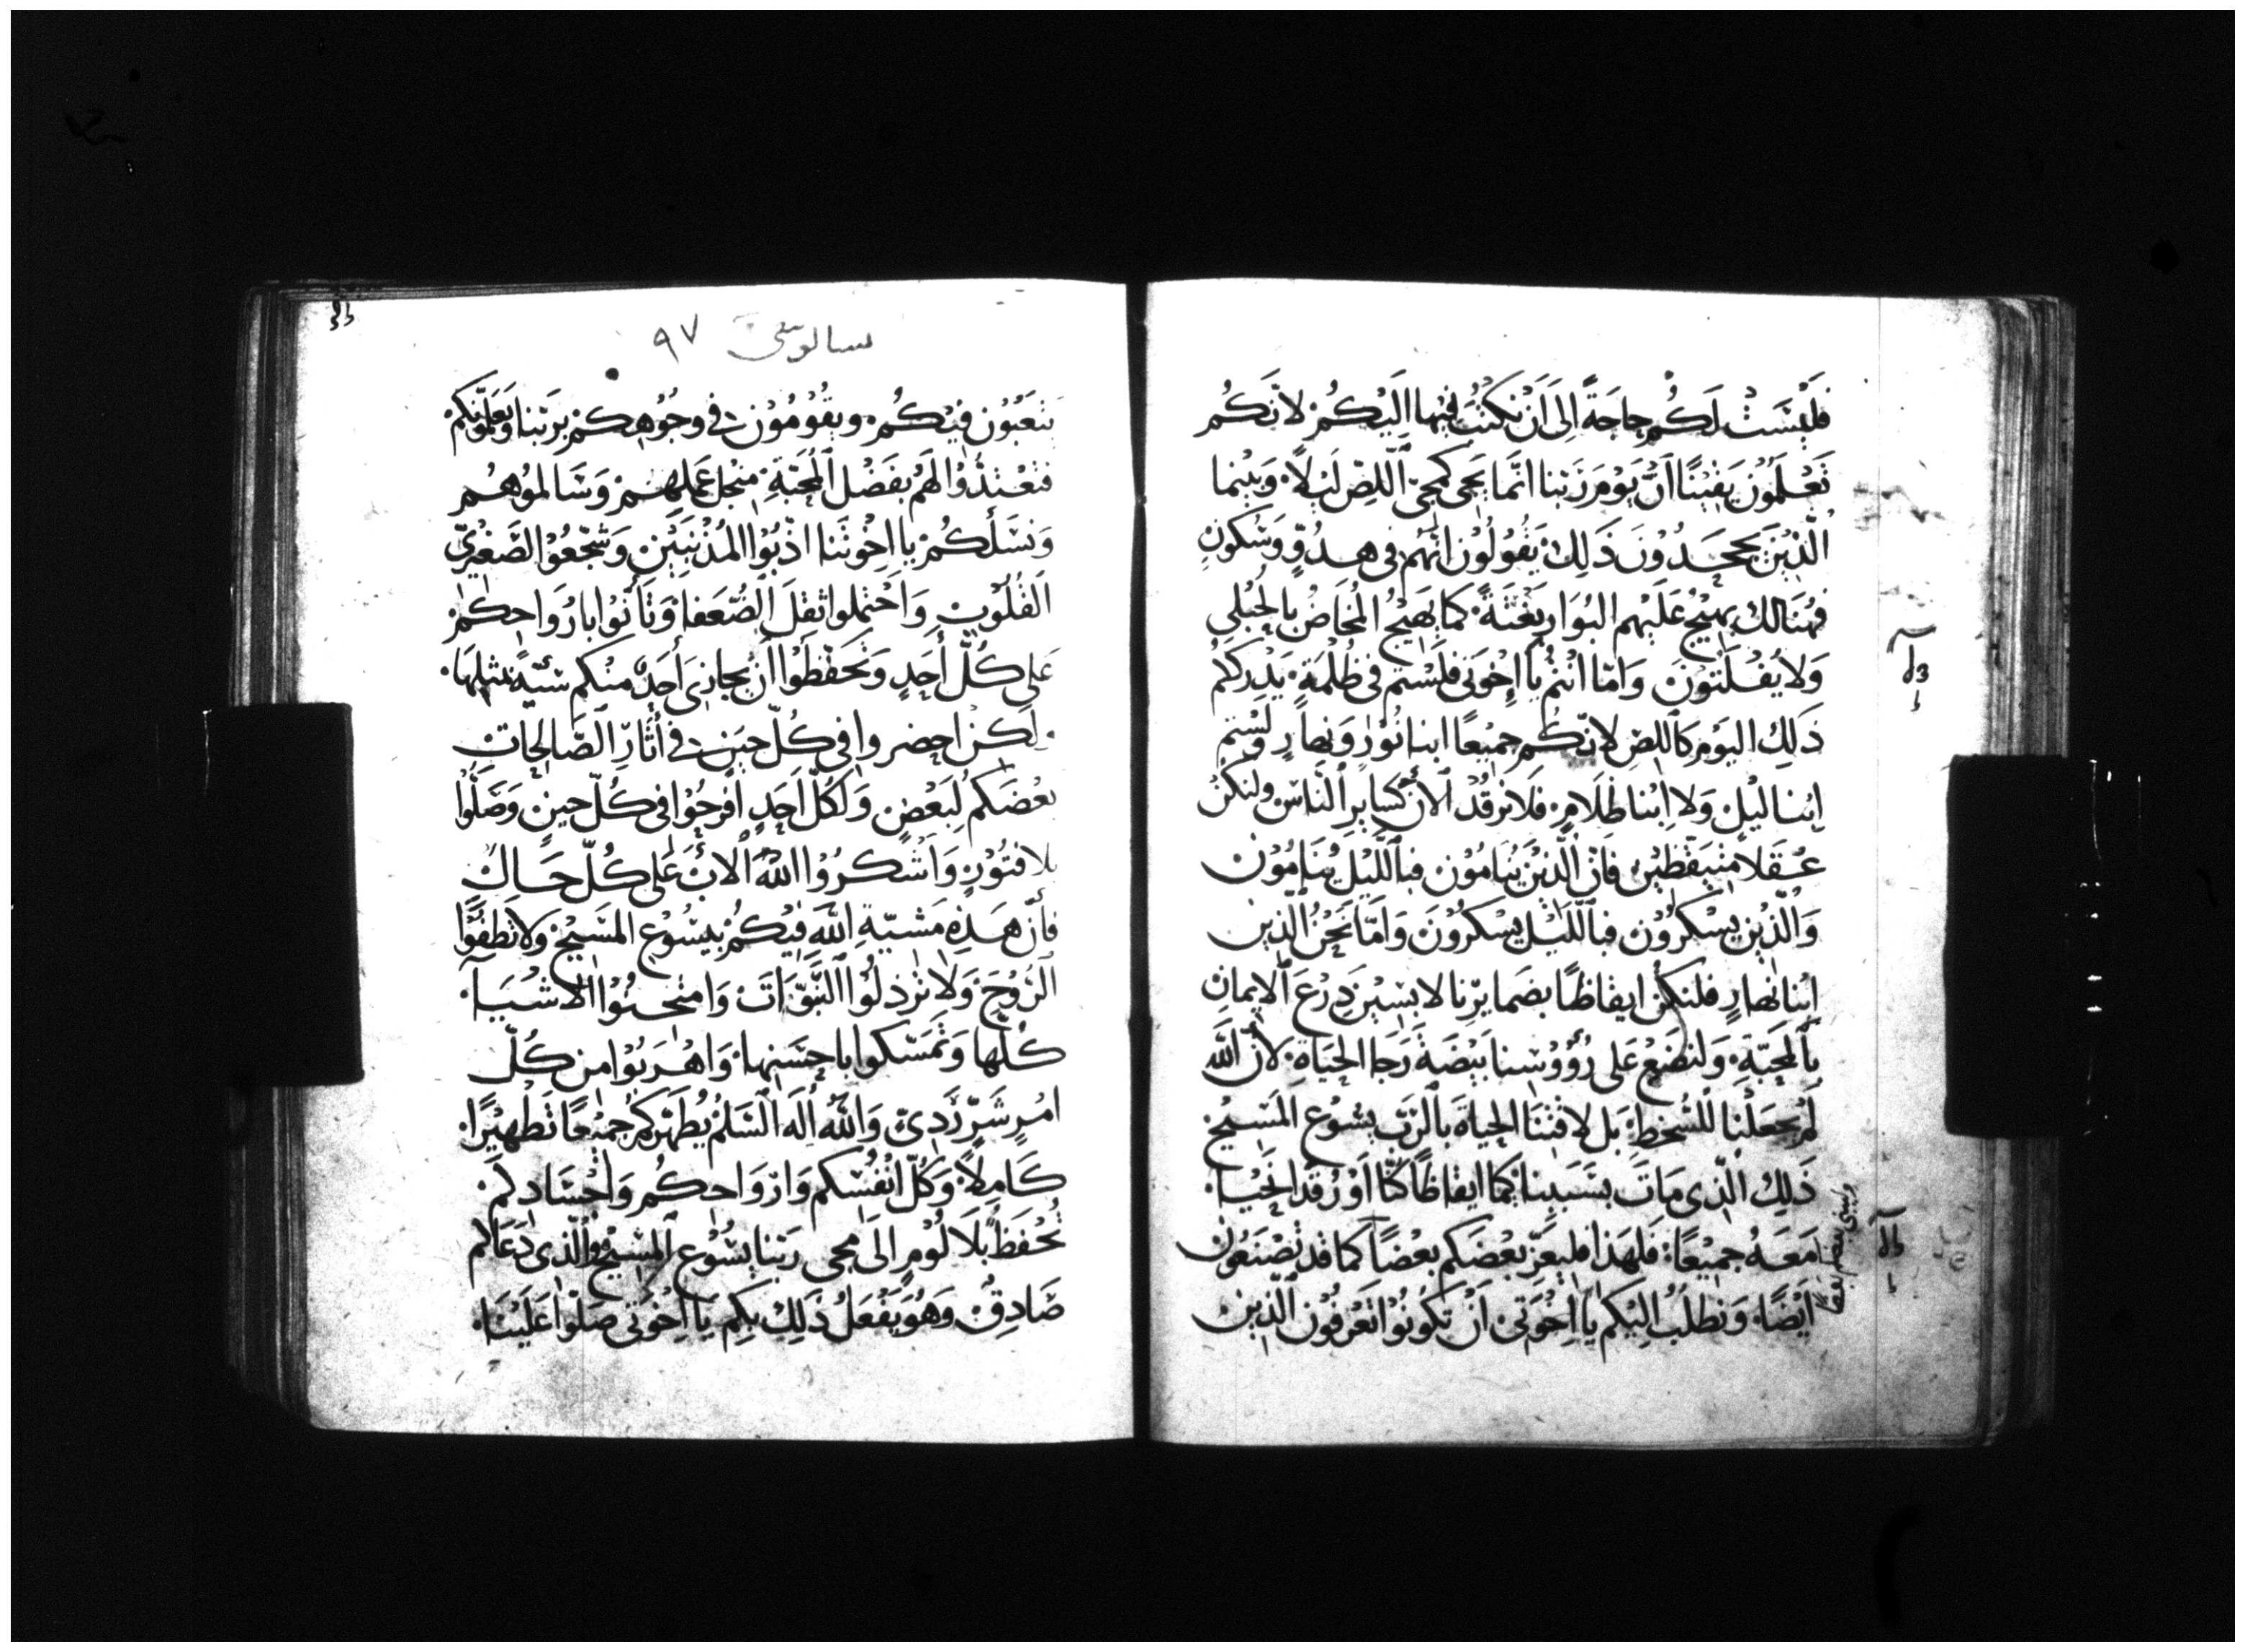 فَلَيْسَتْ لَكُم حاجَةً اِلَى اَنْ نَكتُبَ فيها اِلَيْكُمْ لاَنَّكُم
تَعْلَمُوْنَ يَقيْنًا اَنَّ يَوْمَ رَبَّنا انَّما يَجى كَمجىّ اللّصّ لَيْلاً وَبَيْنما
الَّذيْنَ يَجحَدُوْنَ ذَلِكَ يَقُولُوْنَ انَّهُم فى هدُوٍّ وَسُكونٍ
فَهُنَالك يَهيْجُ عَلَيْهم البُوَار بَغْتَةً كَما يَهيْجُ المُخَاضُ بالحُبْلى
وَلا يُفْلَتُوْنَ وَامّا انْتُم يا اِخْوَتى فلَسْتم فى ظُلْمَةٍ يَدْركَكُم
ذَلِكَ اليَوْم كَاللصّ لاِنّكُم جميْعًا ابنا نُوْرٍ وَنهارٍ ولَسْتم
اِبْنا لَيْلٍ وَلا اِبْنا ظَلَامٍ فَلا نرقُدْ الآن كسَايرِ النّاسَ ولنكُنْ
عُقَلا متيَقّظيْن فانّ الّذيْنَ يُنَامُوْن فبالّلَيْل يُنَامُوْن
وَالّذيْن يسْكرُوْن فبالّلَيْل يسْكرُوْنَ وَامّا نَحْنُ الّذين
ابْنا نَهارٍ فلنكُن ايقاظًا بضَمايرِنا لابسيْن دِرْعَ الايمانِ
بالمحَبّةِ وَلنضَعْ عَلى رُؤُوْسنا بَيْضَةَ رَجَا الحيَاةِ لاَنّ اللّه
لَمْ يجعَلْنا للسُّخطِ بَل لاقتَنَا الحياةَ بالرّبّ يسُوْع المَسيْح
ذَلِكَ الّذى مَاتَ بسَبَبِنا كَما ايقاظًا كُنّا اوْ رُقَّد الَنَحْيا
مَعَهُ جميْعًا فَلهَذا فليعَزّ بعْضَكم بعْضًا كَما قد تَصْنَعُوْن
ايْضًا وَنطلبُ الِيْكم يا اِخْوَتى اَنْ تكُونُوْا تعْرفُوْن الّذيْن
سالونيقى ٩٧
يتعَبُوْن فيْكُم ويقُوْمُوْنَ فى وجُوْهكم برَبّنا وَيعَلّمُونكم
فتعْتدُّوْا لَهُم بفَضْل المُحَبّةِ منْجل عَمَلهم وَسَالمُوْهُم
وَنسَلكُمْ يا اخْوتَنا اذّبُوْا المُذْنبيْن وَشجّعُوْا الصَّغيْرىّ
القُلُوْبِ وَاحْتملوا ثقلَ الضُّعَفا وَتأنّوا بارْوَاحكم
عَلى كُلّ أحَدٍ وَتَحَفّظُوْا انْ يجازى أحَدٌ منكم سَيّةً بمثلِهَا
لكن احضروا فى كُلّ حيْن فى أثارِ الصّالحَاتِ
بعْضَكم لبَعْضٍ وَلكلّ أحَدٍ افرحُوْا فى كُلّ حينٍ وَصَلّوا
بلا فتُوْرٍ وَاشكرُوْا اللّه الآن عَلى كُلّ حَالٍ
فانّ هَذِه مَشيّةِ اللّه فيْكُم بيسُوْع المسَيْح ولا تطفُوْا
الرُّوْحَ وَلا تُرْذلُوْا النَّبوّاتَ وَامتحنُوْا الاشْيَا
كُلّها وَتَمَسّكوا باحسَنها وَاهْرَبُوْا من كُلّ
امْرٍ شَرّ رَدىّ وَاللّه اِلَه السّلمْ يُطَهّركم جميْعًا تَطهيْرًا
كَامِلاً وَكُلّ انْفُسَكم وَارْوَاحكُم وَاجْسَادكم
تُحْفَظُ بلا لُوْمٍ الَى مجى رَبّنا يسُوْع المسَيْح والّذى دَعَاكم
صَادِقٌ وَهُوَ يَفْعَلُ ذَلِكَ بكِم يا اِخْوَتى صَلّوْا عَلَيْنَا